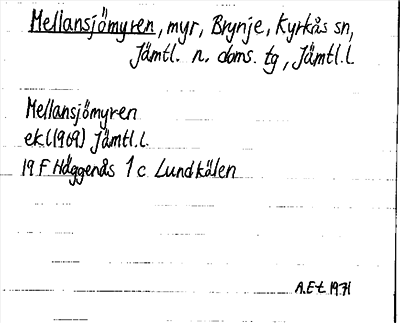 Mellansjömyren, myr, Brynje, Kyrkås sn,
Jämtl. n. doms. tg, Jämtl.l
Mellansjömyren
ek.(1969) Jämtl.l.
19 F Häggenås 1 c Lundkälen
A.E-t 1971